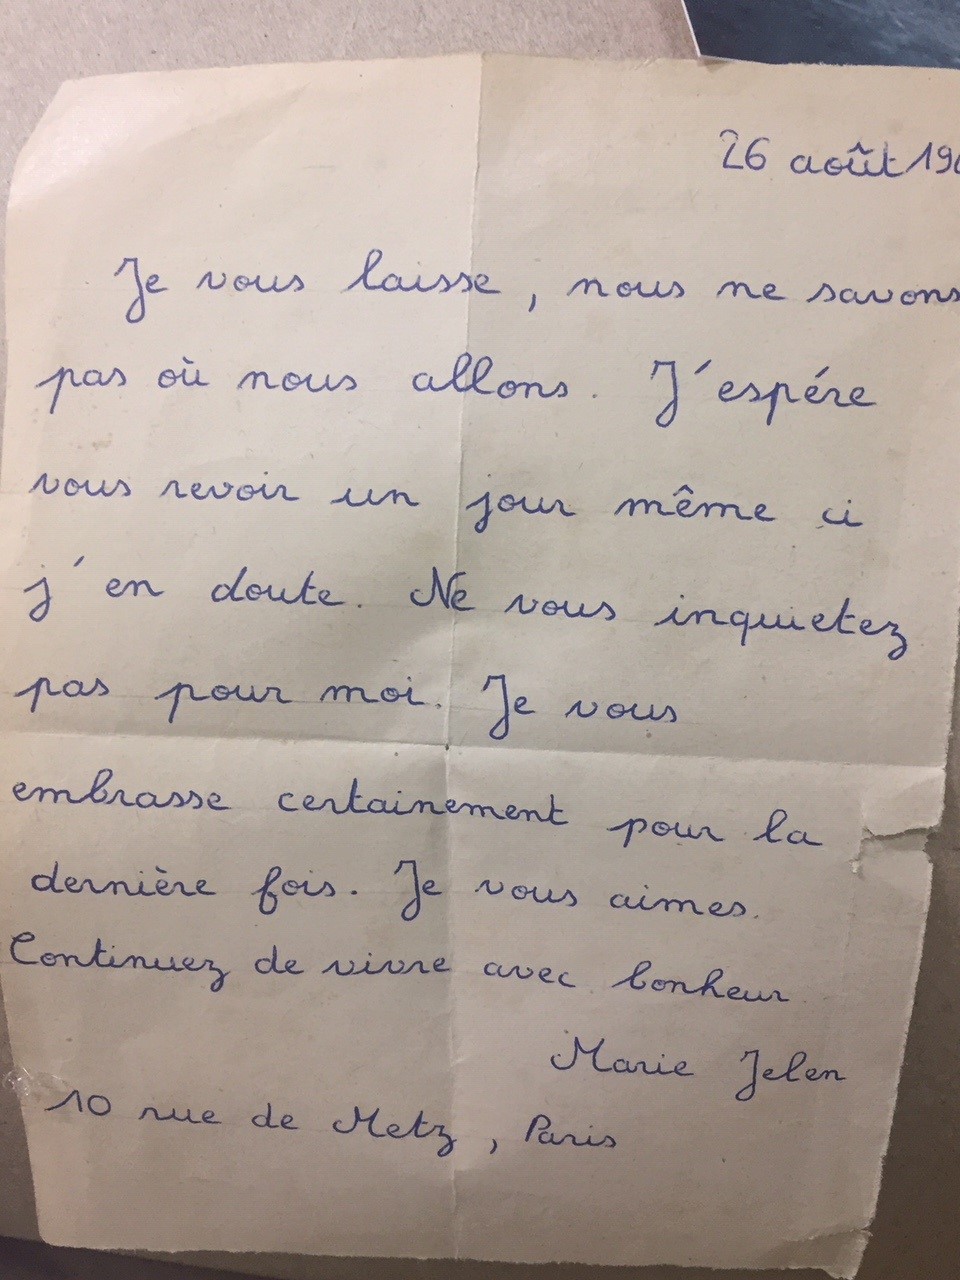 26 août 19
Je vous laisse, nous ne savons
pas où nous allons. J'espére
vous revoir un jour même ci
j'en doute. Ne vous inquietez
pas pour moi. Je vous
embrasse certainement pour la
dernière fois. Je vous aimes.
Continuez de vivre avec bonheur
Marie Jelen
10 rue de Metz, Paris